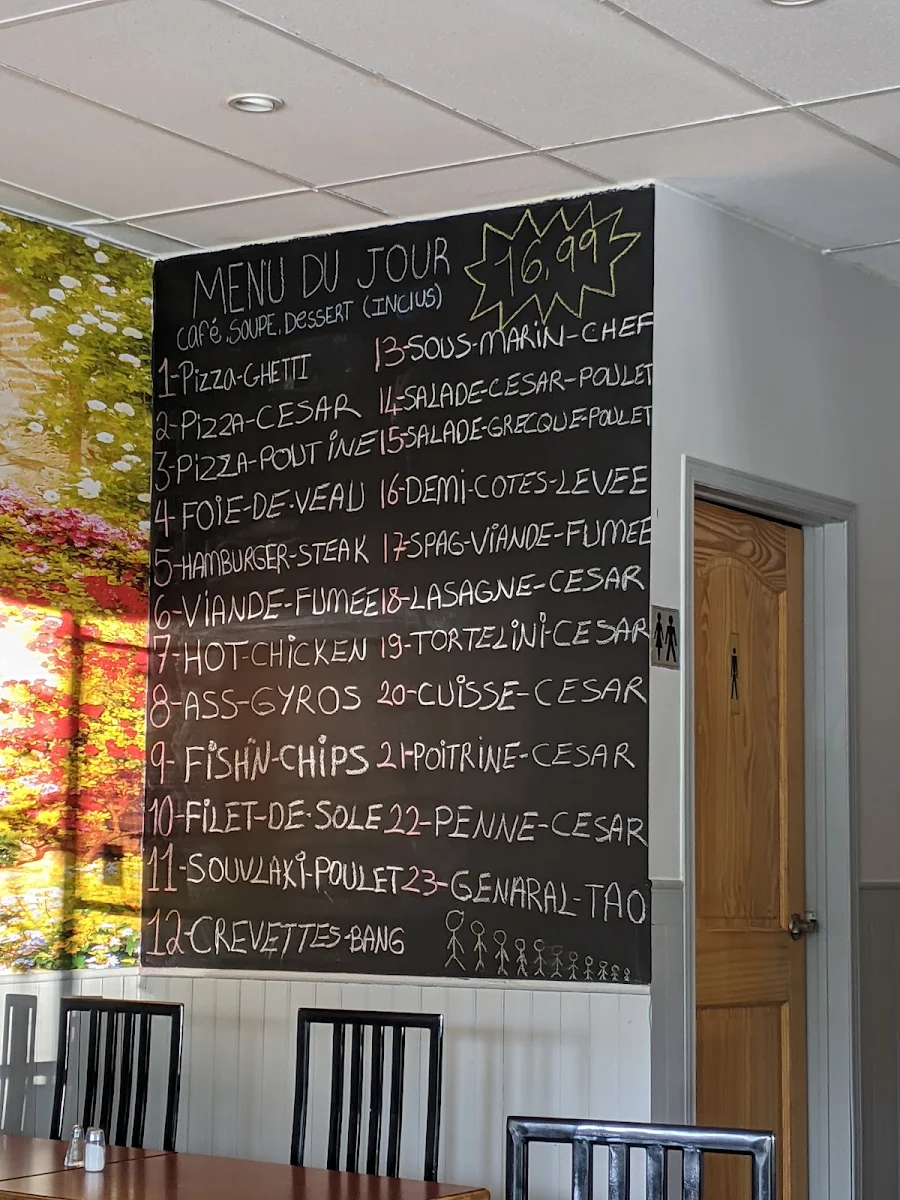 MENU DU JOUR
16,99
Café, SOUPE, DESSERT (INCLUS)
1-Pizza-GHETTI
2-PIZZA-CESAR
3-PIZZA-POUTINE
4-FOIE-DE-VEAU
5-HAMBURGER-STEAK
6-VIANDE-FUMEE
7-HOT-CHICKEN
8-ASS-GYROS
9-FISH'N-CHIPS
10-FILET-DE-SOLE
11-SOUVLAKI-POULET
12-CREVETTES-BANG
13-SOUS-MARIN-CHEF
14-SALADE-CESAR-POULET
15-SALADE-GRECQUE-POULET
16-DEMI-COTES-LEVEE
17-SPAG-VIANDE-FUMEE
18-LASAGNE-CESAR
19-TORTELINI-CESAR
20-CUISSE-CESAR
21-POITRINE-CESAR
22-PENNE-CESAR
23-GENARAL-TAO